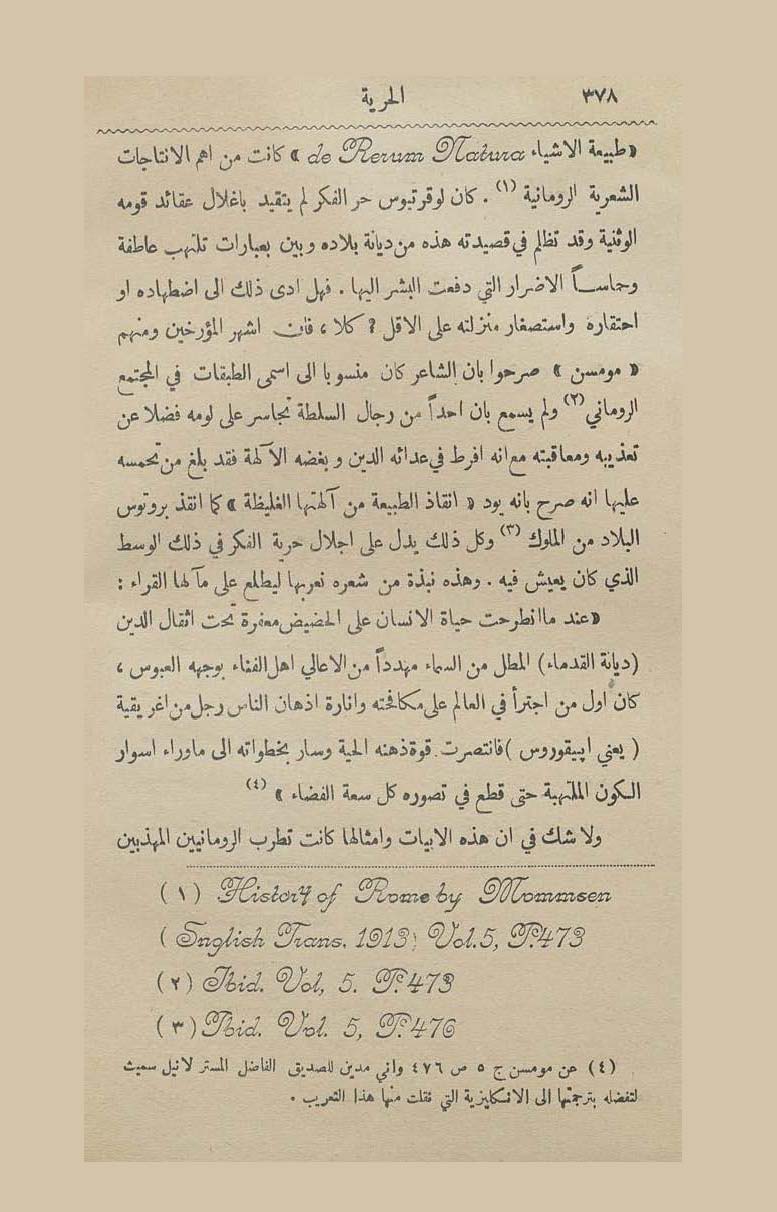 ٣٧٨ الحرية
«طبيعة الاشياء de Rerum Natura » كانت من اهم الانتاجات
الشعرية الرومانية (١) . كان لوقرتيوس حر الفكر لم يتقيد باغلال عقائد قومه
الوثنية وقد تظلم في قصيدته هذه من ديانة بلاده وبين بعبارات تلتهب عاطفة
وحماســاً الاضرار التي دفعت البشر اليها . فهل ادى ذلك الى اضطهاده او
احتقاره واستصغار منزلته على الاقل ? كلا ، فان اشهر المؤرخين ومنهم
« مومسن » صرحوا بان الشاعر كان منسوبا الى اسمى الطبقات في المجتمع
الروماني (٢) ولم يسمع بان احداً من رجال السلطة تجاسر على لومه فضلا عن
تعذيبه ومعاقبته مع انه افرط في عدائه الدين وبغضه الآلهة فقد بلغ من تحمسه
عليها انه صرح بانه يود « انقاذ الطبيعة من آلهتها الغليظة » كما انقذ بروتوس
البلاد من الملوك (٣) وكل ذلك يدل على اجلال حرية الفكر في ذلك الوسط
الذي كان يعيش فيه . وهذه نبذة من شعره نعربها ليطلع على مآلها القراء :
«عند ما انطرحت حياة الانسان على الحضيض معفرة تحت اثقال الدين
(ديانة القدماء) المطل من السماء مهدداً من الاعالي اهل الفناء بوجهه العبوس ،
كان اول من اجترأ في العالم على مكافحته وانارة اذهان الناس رجل من اغريقية
( يعني اپيقوروس ) فانتصرت قوة ذهنه الحية وسار بخطواته الى ماوراء اسوار
الكون الملتهبة حتى قطع في تصوره كل سعة الفضاء » (٤)
ولا شك في ان هذه الابيات وامثالها كانت تطرب الرومانيين المهذبين
(١) History of Rome by Mommsen
( English Trans. 1913) Vol.5, P.473
(٢) Ibid. Vol, 5. P.473
(٣) Ibid. Vol. 5, P.476
(٤) عن مومسن ج ٥ ص ٤٧٦ واني مدين للصديق الفاضل المستر لانيل سميث
لتفضله بترجمتها الى الانكليزية التي نقلت منها هذا التعريب .